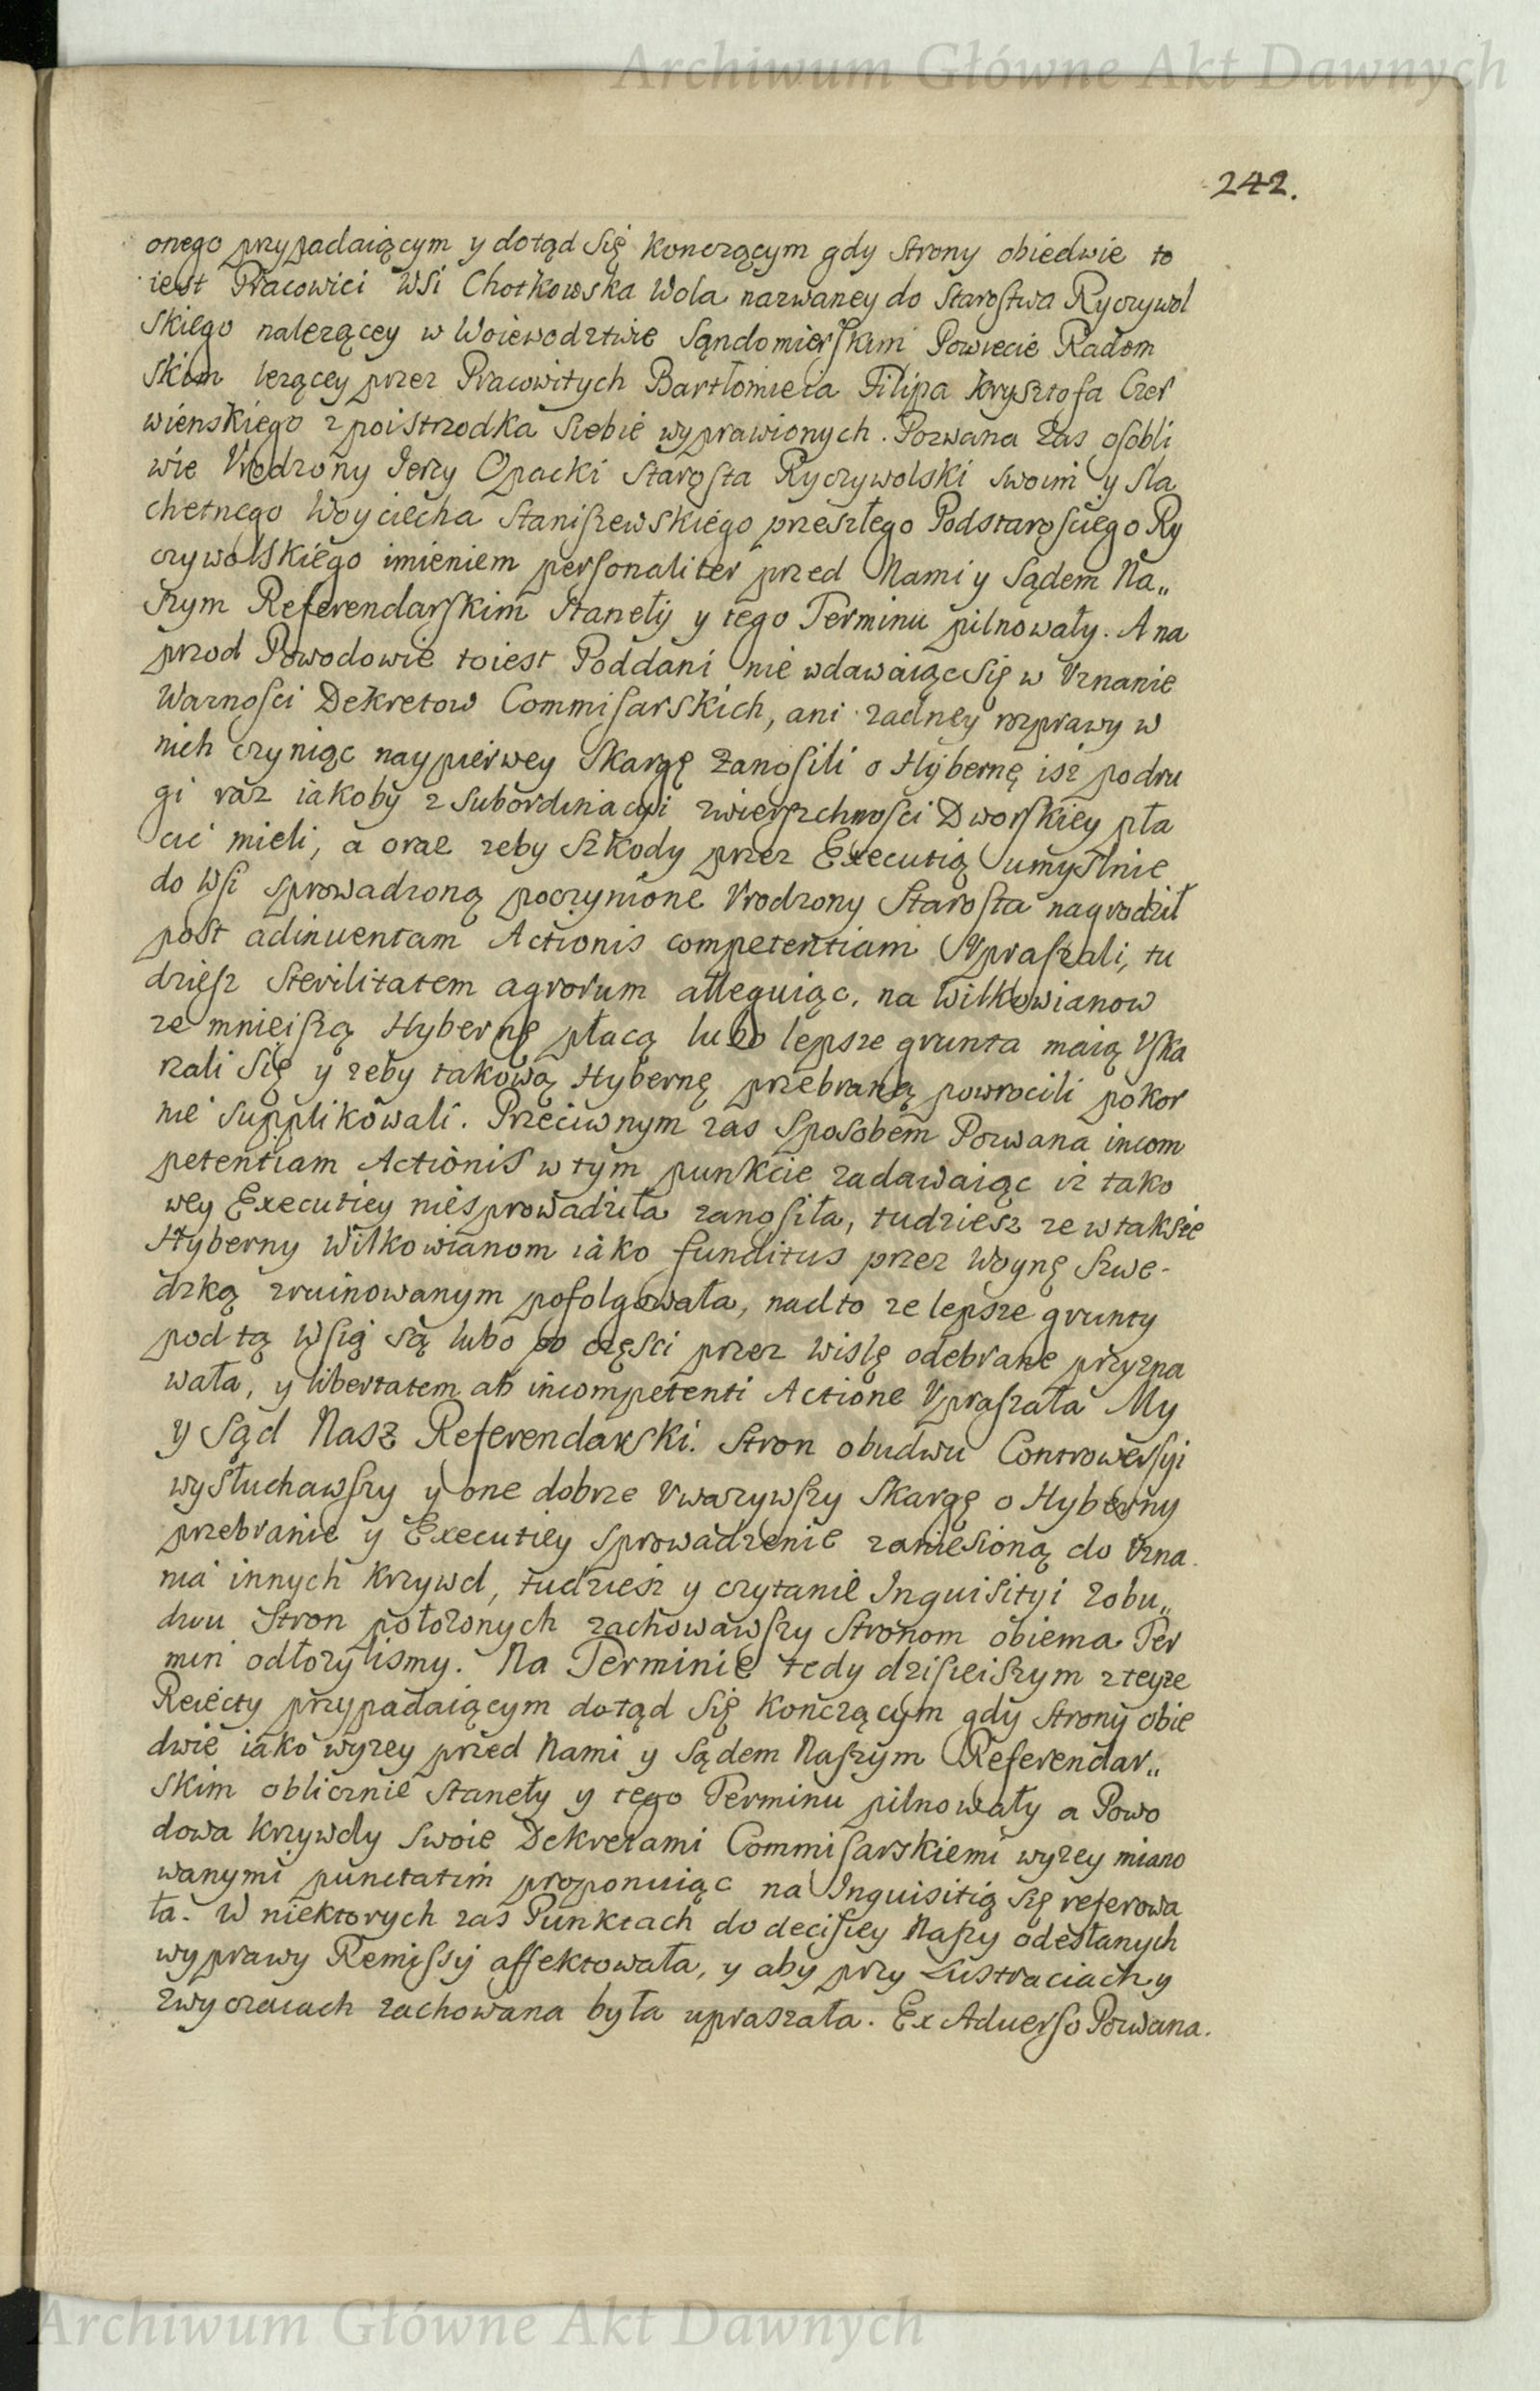 Archiwum Główne Akt Dawnych
242.
onego przypadaiącym y dotąd Się konczącym gdy Strony obiedwie to
iest Pracowici WSi Chotkowska Wola nazwaney do Starostwa Ryczywol
skiego nalezącey w Woiewodztwie Sandomierskim Powiecie Radom
skim lezącey przez Pracowitych Bartłomieia Filipa Krysztofa Czer
wienskiego z poistrzodka Siebie wyprawionych. Pozwana zas osobli
wie Vrodzony Jerzy Opacki Starosta Ryczywolski swoim y Sla
chetnego Woyciecha Staniszewskiego przeszłego Podstarosciego Ry
czywolskiego imieniem personaliter przed Nami y Sądem Na„
szym Referendarskim Staneły y tego Terminu pilnowały. A na
przod Powodowie toiest Poddani nie wdawaiąc Się w Vznanie
Waznosci Dekretow Commisarskich, ani zadney rozprawy w
nich czyniąc naypierwey Skargę zanosili o Hybernę isz podru
gi raz iakoby z Subordinacyi zwierzchnosci Dworskiey pła
cić mieli, a oraz zeby Szkody przez Executią umyslnie
do WSi sprowadzoną poczynione Vrodzony Starosta nagrodził
post adinuentam Actionis competentiam Vpraszali, tu
dziesz Sterilitatem agrorum alleguiąc, na Wilkowianow
ze mnieiszą Hybernę płacą lubo lepsze grunta maią Vska
rzali Się y zeby takową Hybernę przebraną powrocili pokor
nie supplikowali. Przeciwnym zas Sposobem Pozwana incom
petentiam Actionis w tym punkcie zadawaiąc iz tako
wey Executiey niesprowadziła zanosiła, tudziesz ze w taksie
Hyberny Wilkowianom iako funditus przez Woynę Szwe-
dzką zruinowanym pofolgowała, nadto ze lepsze grunty
pod tą Wsią są lubo po części przez Wisłę odebrane przyzna
wała, y libertatem ab incompetenti Actione Vpraszała My
y Sąd Nasz Referendarski. Stron obudwu Controwersyi
wysłuchawszy y one dobrze Vwazywszy Skargę o Hyberny
przebranie y Executiey Sprowadzenie zaniesioną do Vzna
nia innych Krzywd, tudziesz y czytanie Inquisityi zobu„
dwu Stron połozonych zachowawszy Stronom obiema Ter
min odłozylismy. Na Terminie tedy dzisieiszym z teyze
Reiecty przypadaiącym dotąd Się kończącym gdy Strony obie
dwie iako wyzey przed Nami y Sądem Naszym Referendar„
skim oblicznie Staneły y tego Terminu pilnowały a Powo
dowa krzywdy Swoie Dekretami Commisarskiemi wyzey miano
wanymi punctatim proponuiąc na Inquisitią się referowa
ła. W niektorych zas Punktach do decisiey Naszy odesłanych
wyprawy Remissy affektowała, y aby przy Lustraciach y
zwyczaiach zachowana była upraszała. Ex Aduerso Pozwana.
Archiwum Główne Akt Dawnych